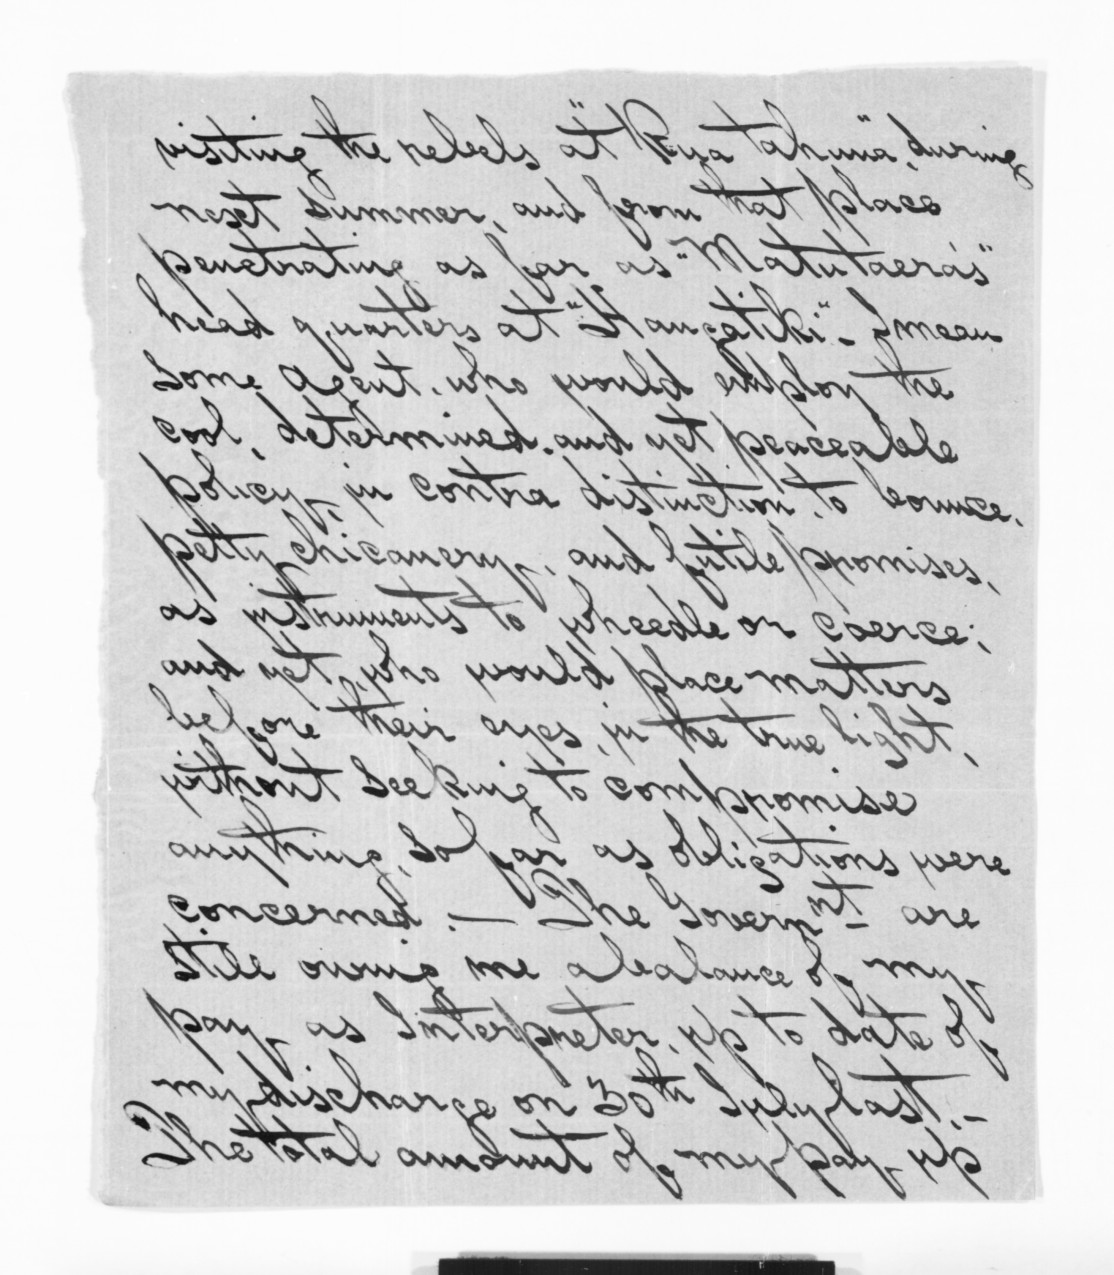 visiting the rebels at "Rua tahuna", during
next Summer, and from that place
penetrating as far, as "Matutaera's"
head quarters at "Hangatiki". I mean
Some, Agent, who would employ the
cool, determined, and yet peaceable
policy, in contra distinction, to bounce,
petty chicanery, and futile promises,
as instruments to wheedle or coerce;
and yet, who would place matters
before their eyes, in the true light,
without Seeking to compromise
anything, So far as obligations were
concerned. — The Governmt. are
Still owing me a balance of my
pay as Interpreter, up to date of
my discharge on 30th July last. —
The total amount of my pay up